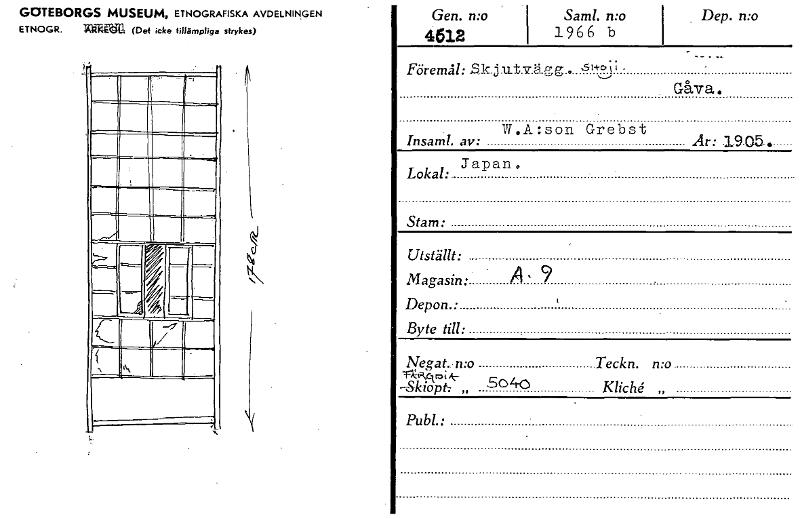 GÖTEBORGS MUSEUM, ETNOGRAFISKA AVDELNINGEN
ETNOGR. ARKEOL. (Det icke tillämpliga strykes)
178 cm
Gen. n:o Saml. n:o Dep. n:o
4612 1966 b
Föremål: Skjutvägg. SHOJI.
Gåva.
Insaml. av: W.A:son Grebst År: 1905.
Lokal: Japan.
Stam:
Utställt:
Magasin: A. 9
Depon.:
Byte till:
Negat. n:o Teckn. n:o
FÄRGDIA
Skiopt: „ 5040 Kliché „
Publ.: